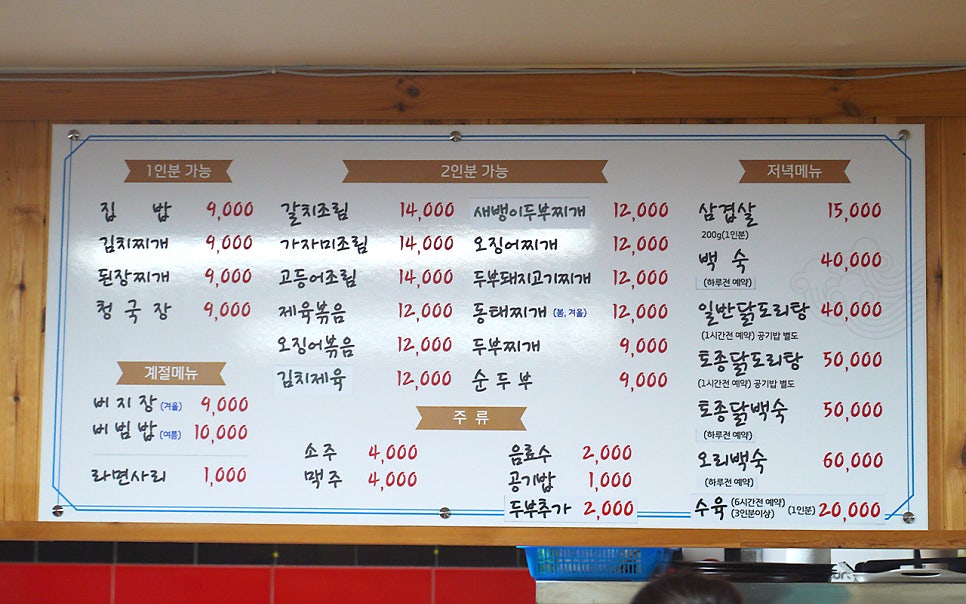 1인분 가능
집 밥 9,000
김치찌개 9,000
된장찌개 9,000
청 국 장 9,000
계절메뉴
비 지 장 (겨울) 9,000
비 빔 밥 (여름) 10,000
라면사리 1,000
2인분 가능
갈치조림 14,000
가자미조림 14,000
고등어조림 14,000
제육볶음 12,000
오징어볶음 12,000
김치제육 12,000
새뱅이두부찌개 12,000
오징어찌개 12,000
두부돼지고기찌개 12,000
동태찌개 (봄, 겨울) 12,000
두부찌개 9,000
순 두 부 9,000
주 류
소 주 4,000
맥 주 4,000
음료수 2,000
공기밥 1,000
두부추가 2,000
저녁메뉴
삼겹살 15,000
200g(1인분)
백 숙 40,000
(하루전 예약)
일반닭도리탕 40,000
(1시간전 예약) 공기밥 별도
토종닭도리탕 50,000
(1시간전 예약) 공기밥 별도
토종닭백숙 50,000
(하루전 예약)
오리백숙 60,000
(하루전 예약)
수육 (6시간전 예약) (3인분이상) (1인분) 20,000